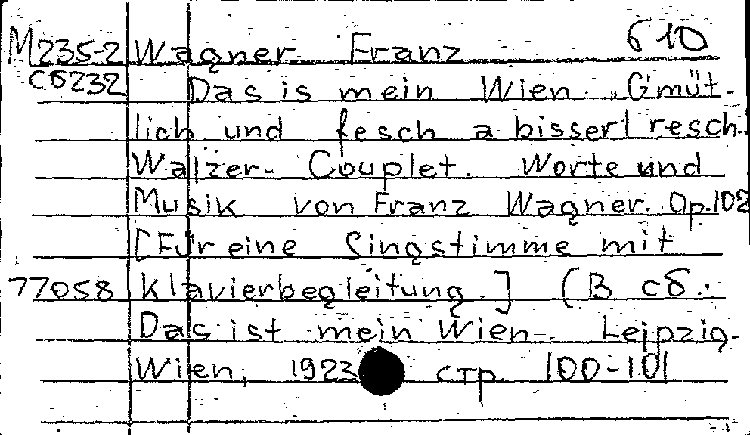 М235-2 Wagner Franz 610
сб232 Das is mein Wien. „Gmüt-
lich und fesch a bisserl resch.
Walzer- Couplet. Worte und
Musik von Franz Wagner. Op.102
[Für eine Singstimme mit
77058 Klavierbegleitung.] (В сб.:
Das ist mein Wien. Leipzig-
Wien, 1923 стр. 100-101